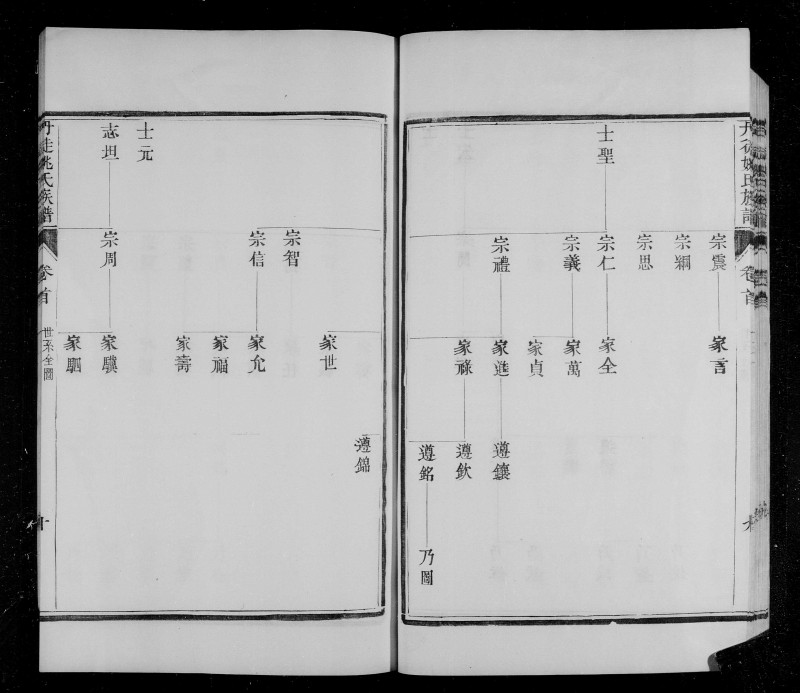 丹徒姚氏族譜
卷首
士聖
宗震
宗綱
宗思
宗仁
宗義
宗禮
家言
家全
家萬
家貞
家進
家祿
遵鑲
遵欽
遵銘
乃圖
士元
志坦
宗智
宗信
宗周
家世
家允
家福
家壽
家驥
家駟
遵錦
丹徒姚氏族譜
卷首
世系全圖
十